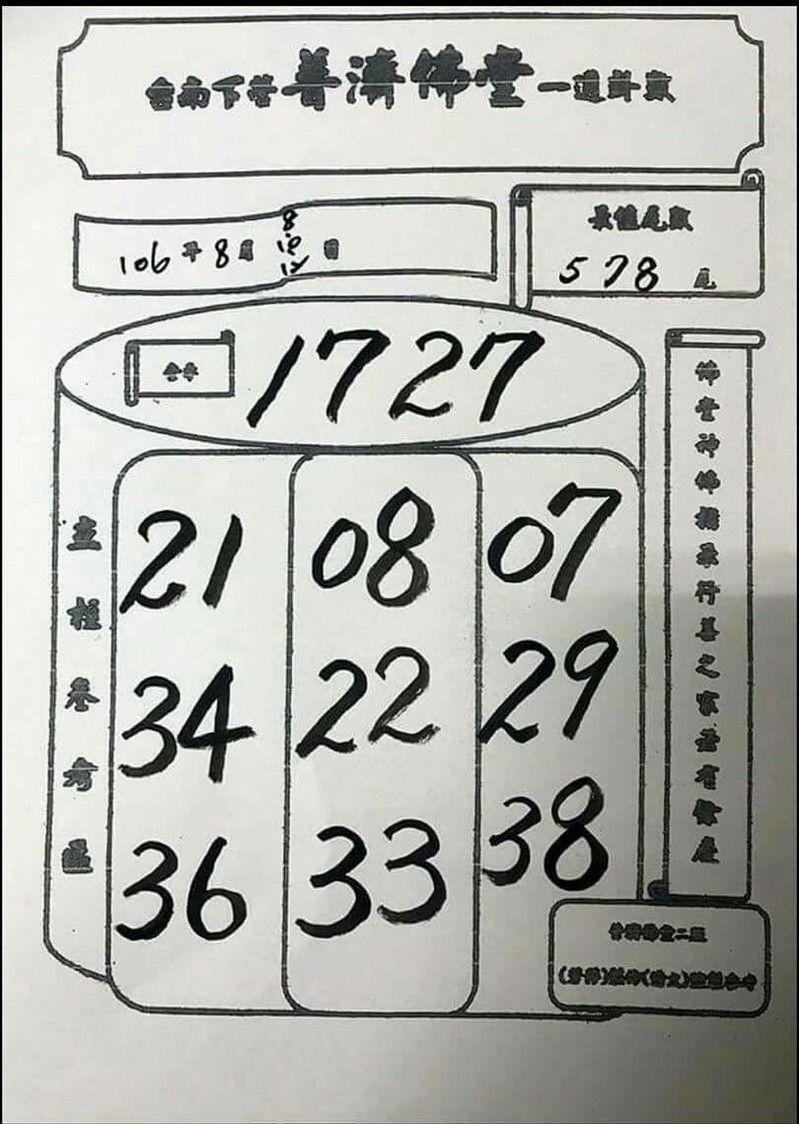 台南下營普濟佛堂一週卦數
106年8月8.10.12日
最值尾數
578尾
1727
主柱參考區
21 08 07
34 22 29
36 33 38
佛堂神佛指示行善之家必有餘慶
普濟佛堂二版